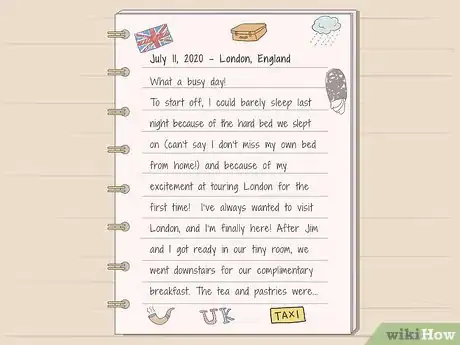 July 11, 2020 - London, England
What a busy day!
To start off, I could barely sleep last
night because of the hard bed we slept
on (can't say I don't miss my own bed
from home!) and because of my
excitement at touring London for the
first time! I've always wanted to visit
London, and I'm finally here! After Jim
and I got ready in our tiny room, we
went downstairs for our complimentary
breakfast. The tea and pastries were...
UK
TAXI
wikiHow